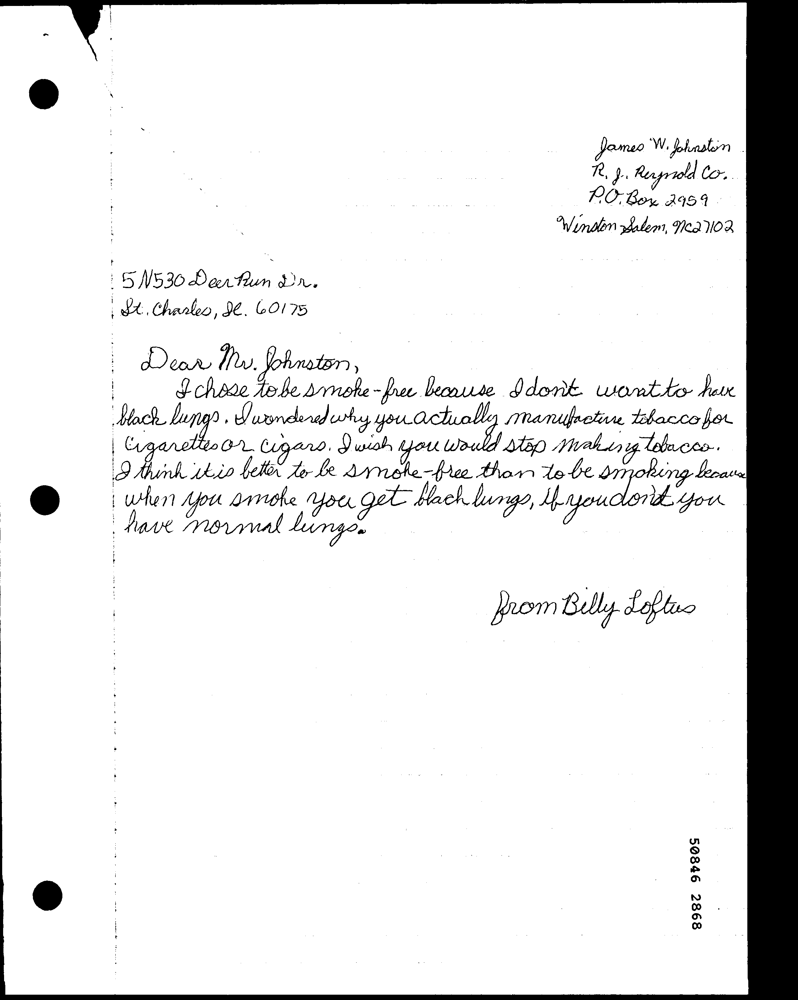 James W. Johnston
R. J. Reynold Co.
P.O. Box 2959
Winston Salem, NC27102
5N530 Deer Run Dr.
St. Charles, Il. 60175
Dear Mr. Johnston,
I chose to be smoke-free because I don't want to have
black lungs. I wondered why you actually manufacture tobacco for
cigarettes or cigars. I wish you would stop making tobacco.
I think it is better to be smoke-free than to be smoking because
when you smoke you get black lungs, if you don't you
have normal lungs.
from Billy Loftus
50846 2868